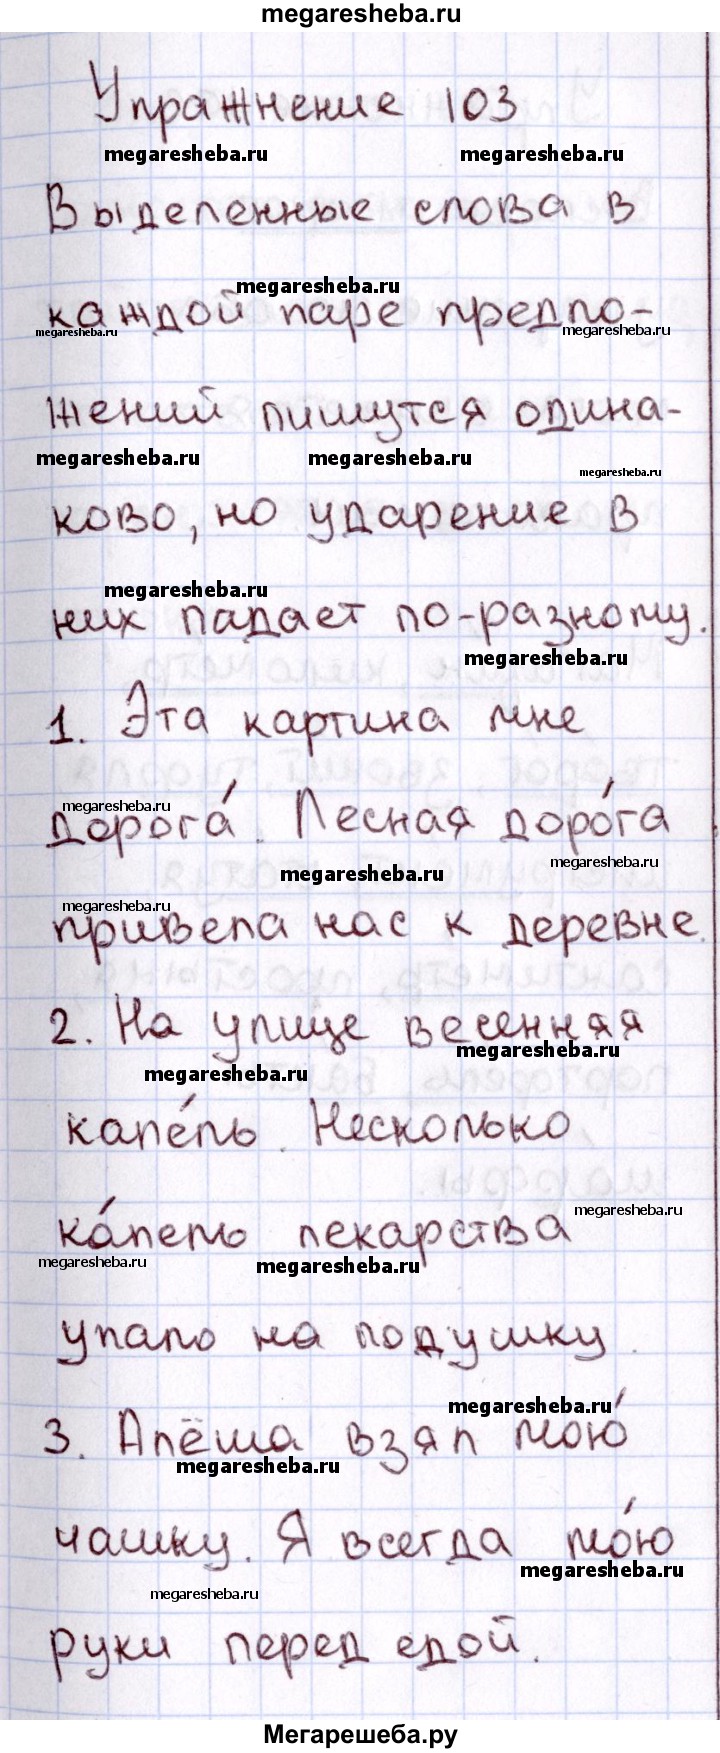 megaresheba.ru
Упражнение 103
megaresheba.ru megaresheba.ru
Выделенные слова в
megaresheba.ru
каждой паре предло-
megaresheba.ru megaresheba.ru
жений пишутся одина-
megaresheba.ru megaresheba.ru
megaresheba.ru
ково, но ударение в
megaresheba.ru
них падает по-разному.
megaresheba.ru
1. Эта картина мне
megaresheba.ru
дорога́. Лесная доро́га
megaresheba.ru
megaresheba.ru
megaresheba.ru
привела нас к деревне.
2. На улице весенняя
megaresheba.ru
megaresheba.ru
капе́ль. Несколько
ка́пель лекарства
megaresheba.ru
megaresheba.ru megaresheba.ru
упало на подушку.
megaresheba.ru
3. Алёша взял мою́
megaresheba.ru
чашку. Я всегда мо́ю
megaresheba.ru
megaresheba.ru
руки перед едой.
Мегарешеба.ру